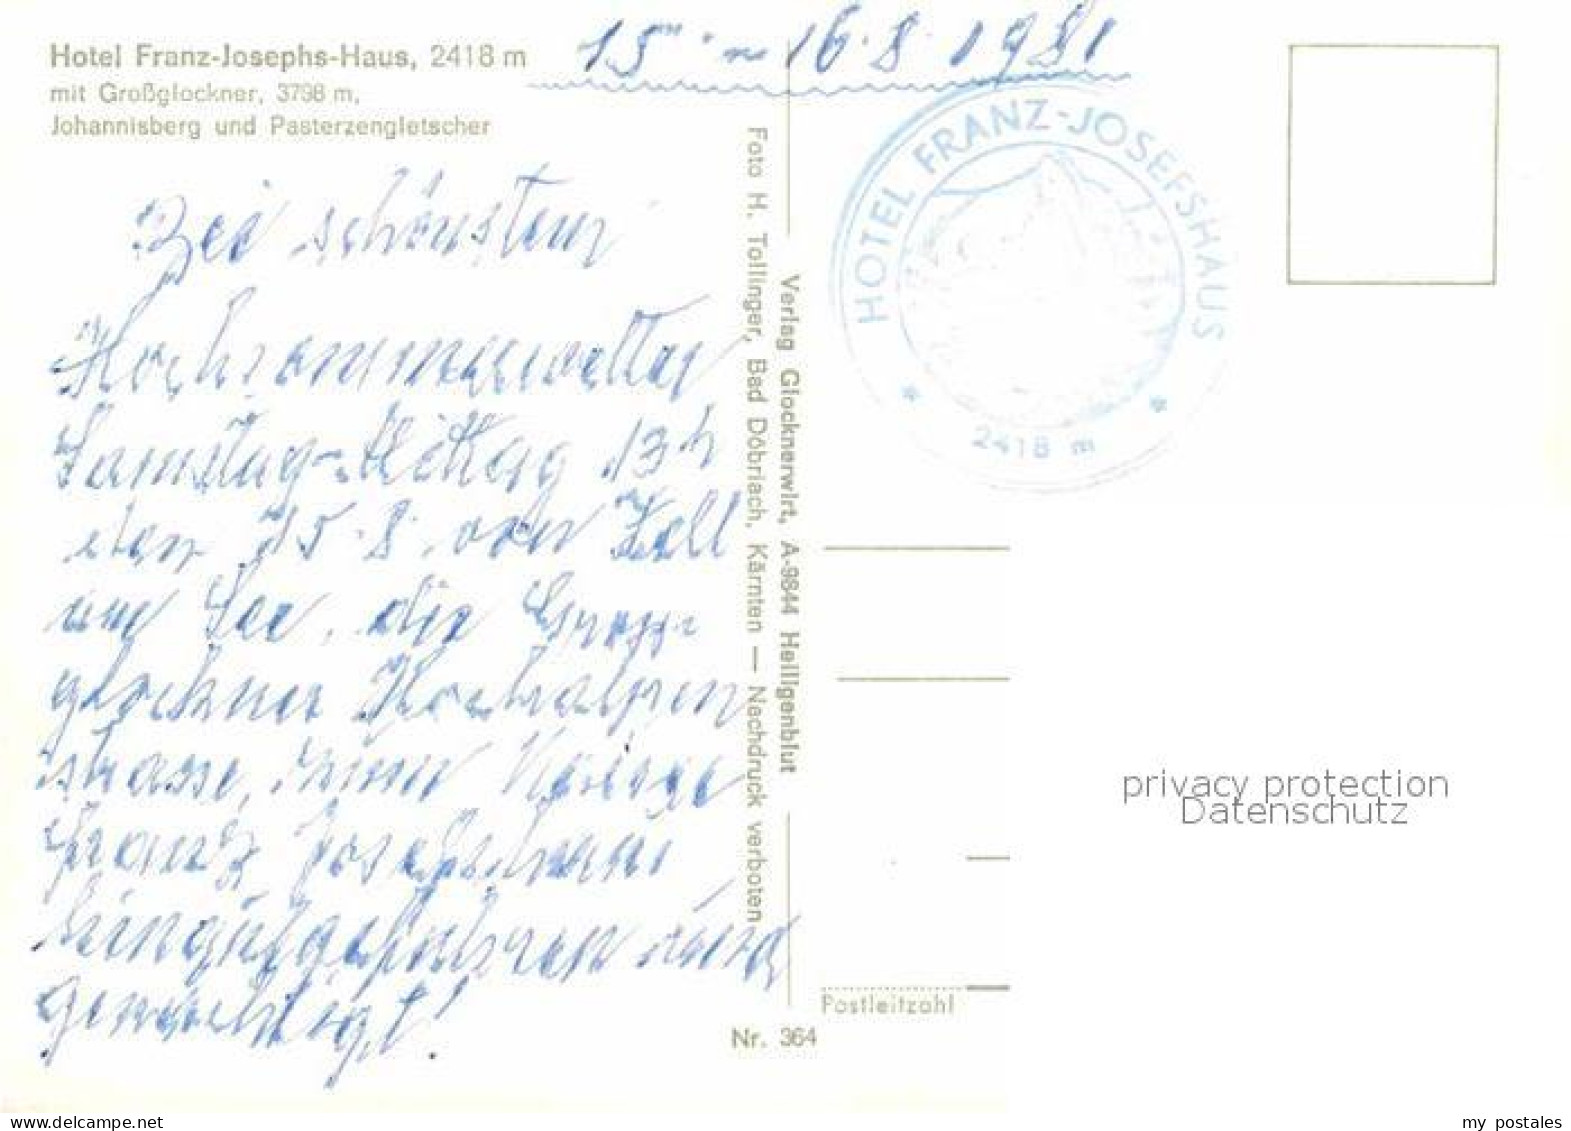 15. - 16.8.1981
Hotel Franz-Josephs-Haus, 2418 m
mit Großglockner, 3798 m,
Johannisberg und Pasterzengletscher
Bei schönstem
Hochsommerwetter
Samstag-Mittag 13h
den 15.8. von Zell
am See, die Gross-
glockner Hochalpen
strasse, zum Kaiser
Franz Josefshaus
hinaufgefahren und
genächtigt!
Foto H. Tollinger, Bad Döbriach, Kärnten — Nachdruck verboten
Verlag Glocknerwirt, A-9844 Heiligenblut
HOTEL FRANZ-JOSEFSHAUS
* 2418 m *
privacy protection
Datenschutz
Postleitzahl
Nr. 364
delcampe.net
my_postales